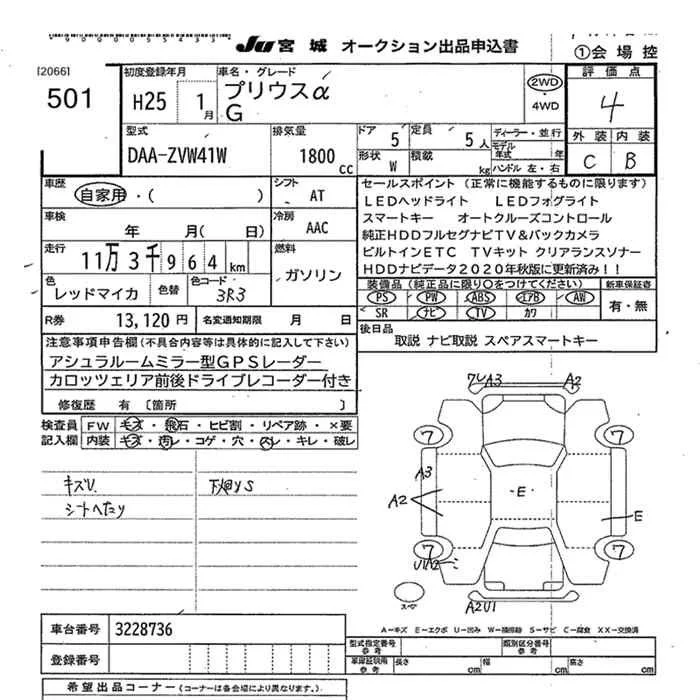 JU 宮城 オークション出品申込書
①会場控
[2066]
501
初度登録年月
H25 1月
車名・グレード
プリウスα
G
2WD
4WD
評価点
4
外装 内装
C B
型式
DAA-ZVW41W
排気量
1800cc
ドア 5
定員 5人
形状 W
積載 kg
ディーラー・並行
モデル年式 年
ハンドル 左・右
車歴
自家用・( )
シフト
AT
車検
年 月( 日)
冷房
AAC
走行
11万3千964km
燃料
ガソリン
色
レッドマイカ
色替
色コード
3R3
R券 13,120円
名変通知期限 月 日
セールスポイント (正常に機能するものに限ります)
LEDヘッドライト LEDフォグライト
スマートキー オートクルーズコントロール
純正HDDフルセグナビTV&バックカメラ
ビルトインETC TVキット クリアランスソナー
HDDナビデータ2020年秋版に更新済み!!
装備品(純正品に限り○をつけてください)
新車保証書
PS PW ABS エアB AW
SR ナビ TV カワ
有・無
後日品
取説 ナビ取説 スペアスマートキー
注意事項申告欄(不具合内容等は具体的に記入して下さい)
アシュラルームミラー型GPSレーダー
カロッツェリア前後ドライブレコーダー付き
修復歴 有 〔箇所 〕
検査員記入欄
FW キズ・飛石・ヒビ割・リペア跡・×要
内装 キズ・汚レ・コゲ・穴・スレ・キレ・破レ
キズU
シートへたり
下廻りS
ワレA3
A2
7
7
A3
A2
E
E
7
7
U1A2
A2U1
スペア
A-キズ E-エクボ U-凹み W-補修跡 S-サビ C-腐食 XX-交換済
車台番号 3228736
登録番号
型式指定番号 参考
類別区分番号 参考
車庫証明用 参考
長さ cm
幅 cm
高さ cm
希望出品コーナー(コーナーは各会場により異なります。)